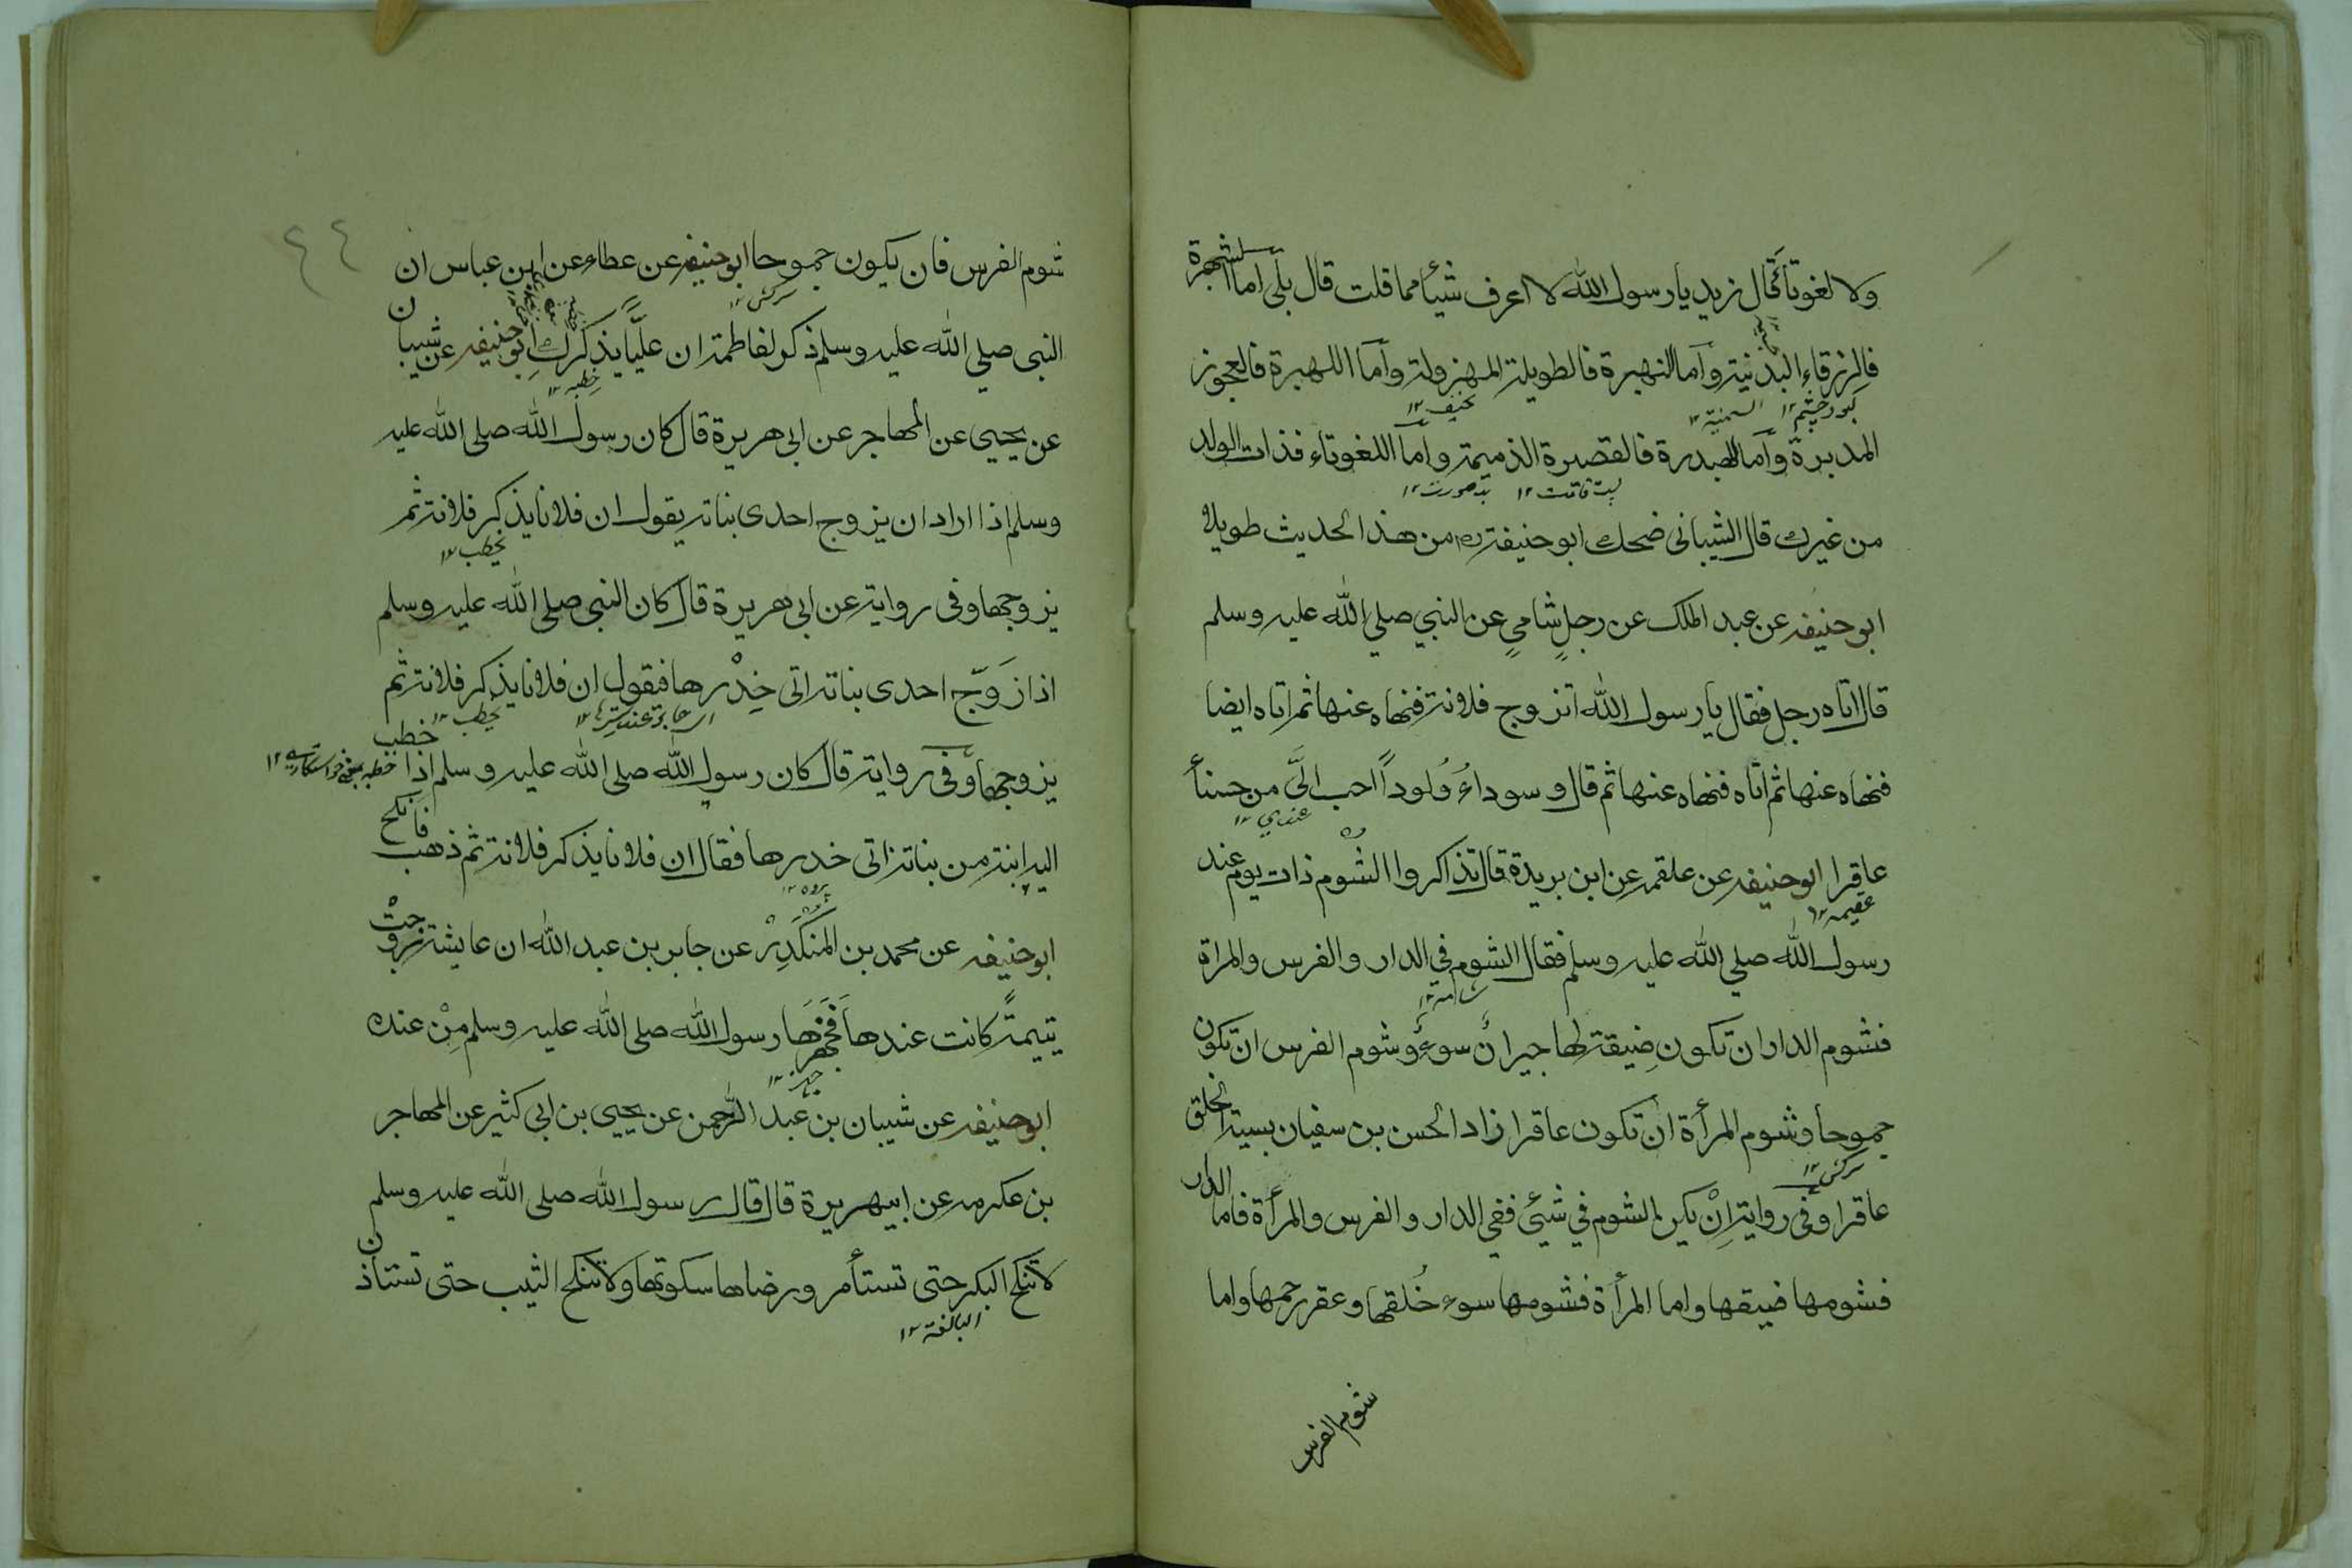 ولا لغوتا فقال زيد يا رسول الله لا اعرف شيئا مما قلت قال بلى اما الشهبرة
فالزرقاء البدنية واما النهبرة فالطويلة المهزولة واما اللهبرة فالعجوز
كبود چشم ١٢ السمنية ١٢ نحيف ١٢
المدبرة واما الهبدرة فالقصيرة الذميمة واما اللغوتاء فذات الولد
پست قامت ١٢ بدصورت ١٢
من غيرك قال الشيباني ضحك ابو حنيفة من هذا الحديث طويلا
ابو حنيفه عن عبد الملك عن رجلٍ شاميٍ عن النبي صلي الله عليه وسلم
قال اتاه رجل فقال يا رسول الله اتزوج فلانة فنهاه عنها ثم اتاه ايضا
فنهاه عنها ثم اتاه فنهاه عنها ثم قال وسوداءُ وَلوداً احب اليَّ من حسنأ
عندي ١٢
عاقرا ابو حنيفه عن علقمه عن ابن بريدة قال تذاكروا الشوم ذات يوم عند
عقيمه ١٢
رسول الله صلي الله عليه وسلم فقال الشوم في الدار والفرس والمراة
فشوم الدار ان تكون ضيقة لها جيران سوءٍ وشوم الفرس ان تكون
جموحا وشوم المرأة ان تكون عاقرا زاد الحسن بن سفيان بسيئة الخلق
سركش ١٢
عاقرا وفى رواية اِنْ يكن الشوم في شيئ ففي الدار والفرس والمرأة فاما الدار
فشومها ضيقها واما المرأة فشومها سوء خُلقها وعقر رحمها واما
شوم الفرس
٤٤
شوم الفرس فان يكون جموحا ابو حنيفه عن عطاء عن ابن عباس ان
سركش ١٢
النبى صلي الله عليه وسلم ذكر لفاطمة ان عليَّا يذكركِ ابو حنيفه عن شيبان
خطبه ١٢
عن يحيى عن المهاجر عن ابى هريرة قال كان رسول الله صلى الله عليه
وسلم اذا اراد ان يزوج احدى بناته يقول ان فلانا يذكر فلانة ثم
يخطب ١٢
يزوجها وفى رواية عن ابى هريرة قال كان النبى صلى الله عليه وسلم
اذا زَوَّج احدى بناته اتى خِدْرها فيقول ان فلانا يذكر فلانة ثم
يخطب ١٢
يزوجها وفى رواية قال كان رسول الله صلى الله عليه وسلم اذا خطب
خطبه بمعنى خواستگارى ١٢
اليه ابنة من بناته اتى خدرها فقال ان فلانا يذكر فلانة ثم ذهب فانكح
پرده ١٢
ابو حنيفه عن محمد بن المنكَدِرْ عن جابر بن عبد الله ان عايشة زوجتْ
يتيمةً كانت عندها فَجَهَّزَهَا رسول الله صلى الله عليه وسلم مِنْ عنده
جهيز ١٢
ابو حنيفه عن شيبان بن عبد الرحمن عن يحيى بن ابى كثير عن المهاجر
بن عكرمه عن ابيهريرة قال قال رسول الله صلى الله عليه وسلم
لا تنكح البكر حتى تستأمر ورضاها سكوتها ولا تنكح الثيب حتى تستاذن
البالغة ١٢